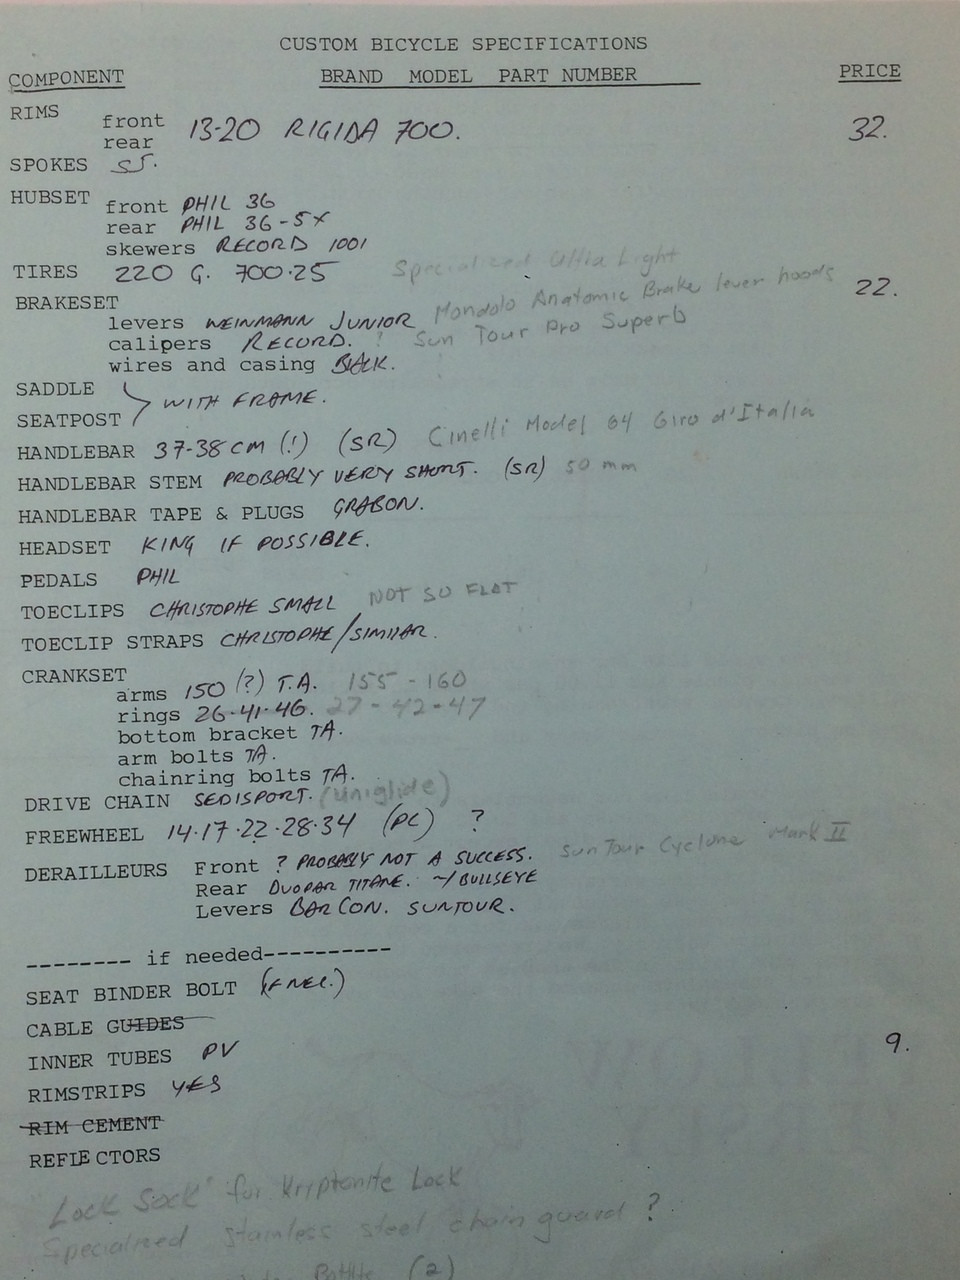 CUSTOM BICYCLE SPECIFICATIONS
COMPONENT BRAND MODEL PART NUMBER PRICE
RIMS front
rear 13-20 RIGIDA 700. 32.
SPOKES SS.
HUBSET front PHIL 36
rear PHIL 36-5x
skewers RECORD 1001
TIRES 220 G. 700.25 Specialized Ultra Light 22.
BRAKESET
levers WEINMANN JUNIOR Mondolo Anatomic Brake lever hoods
calipers RECORD. ? Sun Tour Pro Superb
wires and casing BLACK.
SADDLE
SEATPOST WITH FRAME.
HANDLEBAR 37-38 CM (!) (SR) Cinelli Model 64 Giro d'Italia
HANDLEBAR STEM PROBABLY VERY SHORT. (SR) 50 mm
HANDLEBAR TAPE & PLUGS GRABON.
HEADSET KING IF POSSIBLE.
PEDALS PHIL
TOECLIPS CHRISTOPHE SMALL NOT SO FLAT
TOECLIP STRAPS CHRISTOPHE/SIMILAR.
CRANKSET
arms 150 (?) T.A. 155 - 160
rings 26.41.46. 27-42-47
bottom bracket TA.
arm bolts TA.
chainring bolts TA.
DRIVE CHAIN SEDISPORT. (Uniglide)
FREEWHEEL 14.17.22.28.34 (PC) ?
DERAILLEURS Front ? PROBABLY NOT A SUCCESS. Sun Tour Cyclone Mark II
Rear DUOPAR TITANE. ~/BULLSEYE
Levers BAR CON. SUNTOUR.
-------- if needed----------
SEAT BINDER BOLT
CABLE GUIDES
INNER TUBES PV 9.
RIMSTRIPS YES
RIM CEMENT
REFLECTORS
"Lock Sock" for Kryptonite Lock
Specialized stainless steel chain guard ?
(2)